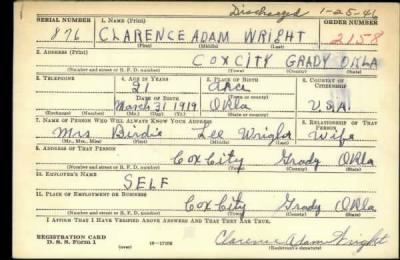 Discharged 1-25-41
SERIAL NUMBER 1. NAME (Print) ORDER NUMBER
876 CLARENCE ADAM WRIGHT 2158
(First) (Middle) (Last)
2. ADDRESS (Print)
COX CITY GRADY OKLA
(Number and street or R. F. D. number) (Town) (County) (State)
3. TELEPHONE 4. AGE IN YEARS 5. PLACE OF BIRTH 6. COUNTRY OF CITIZENSHIP
21
DATE OF BIRTH (Town or county)
March 31 1919 Okla U.S.A.
(Exchange) (Number) (Mo.) (Day) (Yr.) (State or country)
7. NAME OF PERSON WHO WILL ALWAYS KNOW YOUR ADDRESS 8. RELATIONSHIP OF THAT PERSON
Mrs Birdie Lee Wright Wife
(Mr., Mrs., Miss) (First) (Middle) (Last)
9. ADDRESS OF THAT PERSON
Cox City Grady Okla
(Number and street or R. F. D. number) (Town) (County) (State)
10. EMPLOYER'S NAME
SELF
11. PLACE OF EMPLOYMENT OR BUSINESS
Cox City Grady Okla
(Number and street or R. F. D. number) (Town) (County) (State)
I AFFIRM THAT I HAVE VERIFIED ABOVE ANSWERS AND THAT THEY ARE TRUE.
REGISTRATION CARD
D. S. S. Form 1 (over) Clarence Adam Wright
(Registrant's signature)